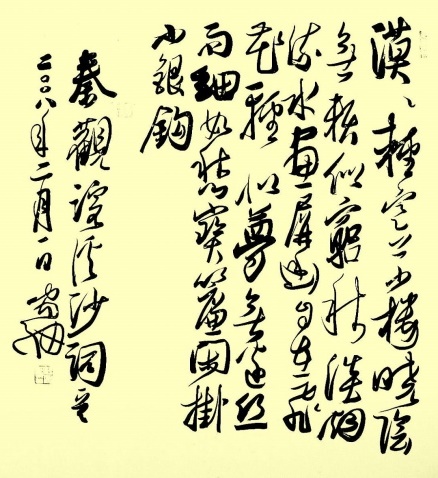 漠〻輕寒上小樓曉陰
無賴似窮秋淡烟
流水畫屏幽自在飛
花輕似夢無邊絲
雨細如愁寶簾閑掛
小銀鈎
秦觀浣溪沙詞
二〇〇八年二月一日